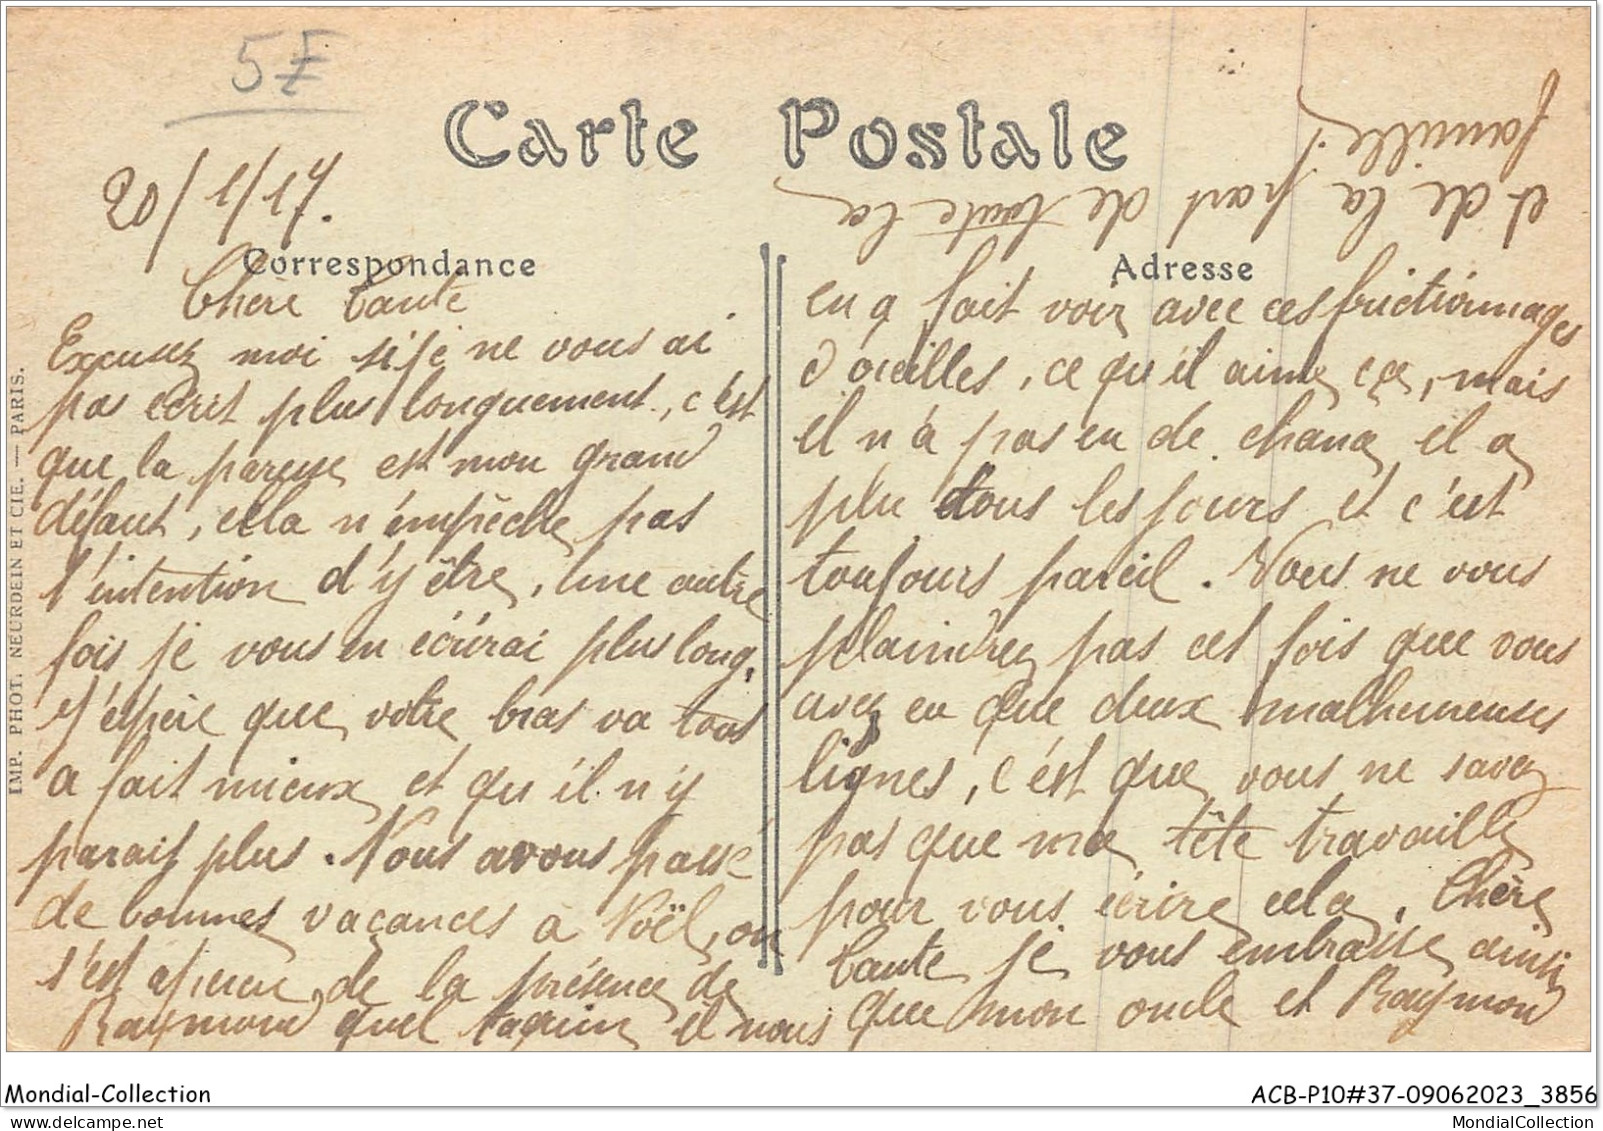 5F
Carte Postale
20/1/17.
Correspondance
Chère Tante
Excusez moi si je ne vous ai
pas écrit plus longuement, c'est
que la paresse est mon grand
défaut, cela n'empêche pas
l'intention d'y être, une autre
fois je vous en écrirai plus long,
J'espère que votre bras va tout
a fait mieux et qu'il n'y
parait plus. Nous avons passé
de bonnes vacances à Noël, on
s'est aperçu de la présence de
Raymond quel taquin il nous
Adresse
en a fait voir avec ces frictionnages
d'oreilles, ce qu'il aime ça, mais
il n'a pas eu de chance il a
plu tous les jours et c'est
toujours pareil. Vous ne vous
plaindrez pas cet fois que vous
avez eu que deux malheureuses
lignes, c'est que vous ne savez
pas que ma tête travaille
pour vous écrire cela. Chère
Tante je vous embrasse ainsi
que mon oncle et Raymond
et de la part de toute la
famille.
IMP. PHOT. NEURDEIN ET CIE. — PARIS.
Mondial-Collection
ACB-P10#37-09062023_3856
MondialCollection